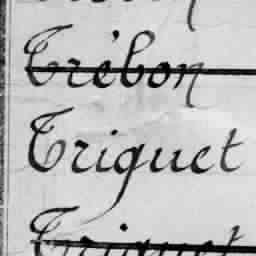 Trébon
Triquet
Triquet